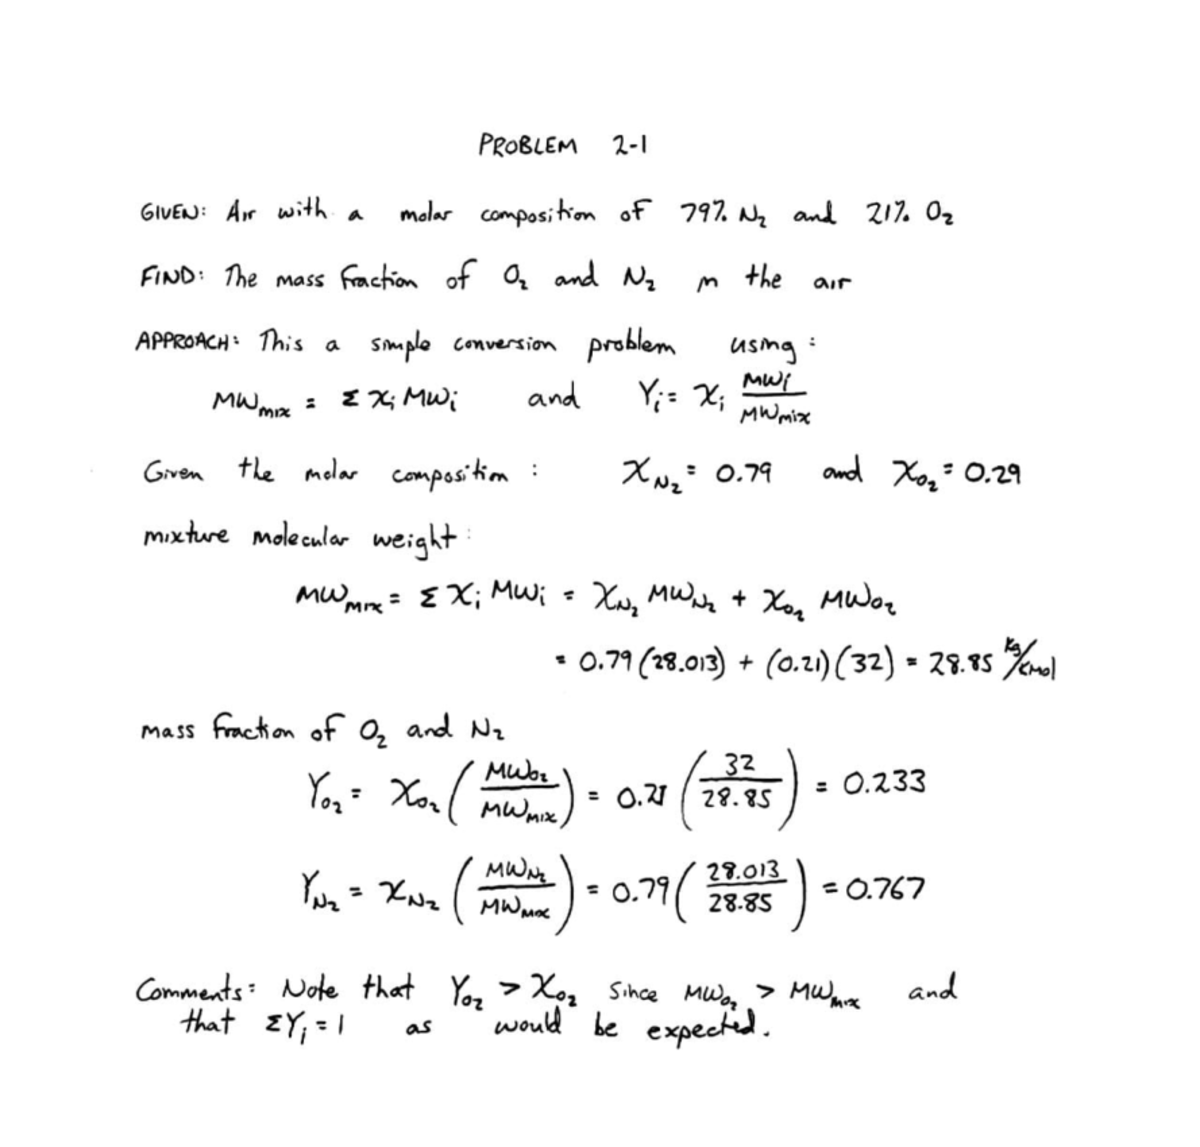 PROBLEM 2-1
GIVEN: Air with a molar composition of 79% N₂ and 21% O₂
FIND: The mass fraction of O₂ and N₂ in the air
APPROACH: This a simple conversion problem using:
MW_mix = Σ χᵢ MWᵢ and Yᵢ = χᵢ MWᵢ/MW_mix
Given the molar composition: χ_N₂ = 0.79 and χ_O₂ = 0.29
mixture molecular weight:
MW_mix = Σ χᵢ MWᵢ = χ_N₂ MW_N₂ + χ_O₂ MW_O₂
= 0.79 (28.013) + (0.21)(32) = 28.85 kg/kmol
mass fraction of O₂ and N₂
Y_O₂ = χ_O₂ (MW_O₂/MW_MIX) = 0.21 (32/28.85) = 0.233
Y_N₂ = χ_N₂ (MW_N₂/MW_mix) = 0.79 (28.013/28.85) = 0.767
Comments: Note that Y_O₂ > χ_O₂ since MW_O₂ > MW_mix and
that ΣYᵢ = 1 as would be expected.